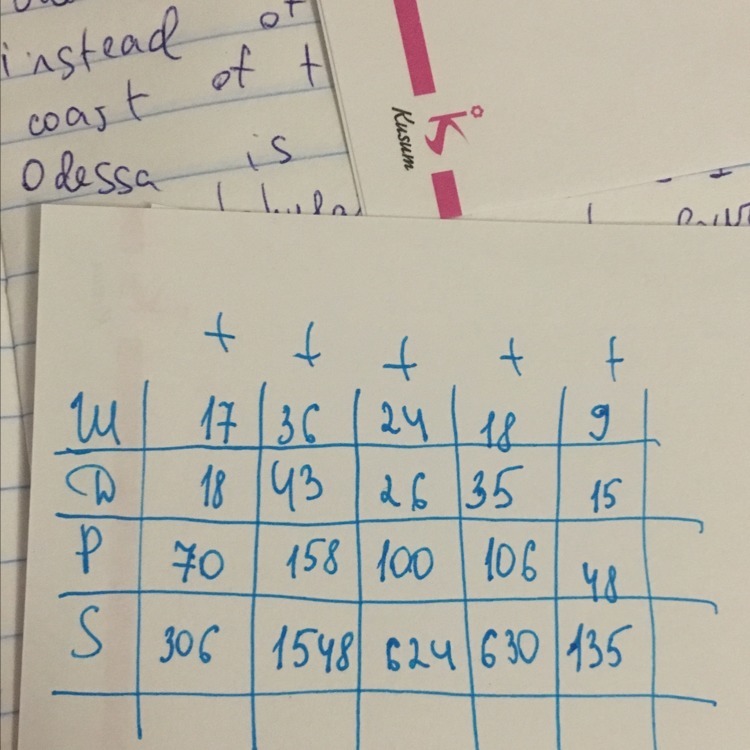 instead of
coast of t
Odessa is
Kusum
+ + + + +
Ш 17 36 24 18 9
D 18 43 26 35 15
P 70 158 100 106 48
S 306 1548 624 630 135